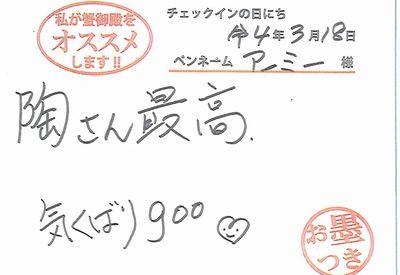 私が蟹御殿を
オススメ
します!!
チェックインの日にち
令4年3月18日
ペンネーム アンミー 様
陶さん最高.
気くばり900
お墨
つき